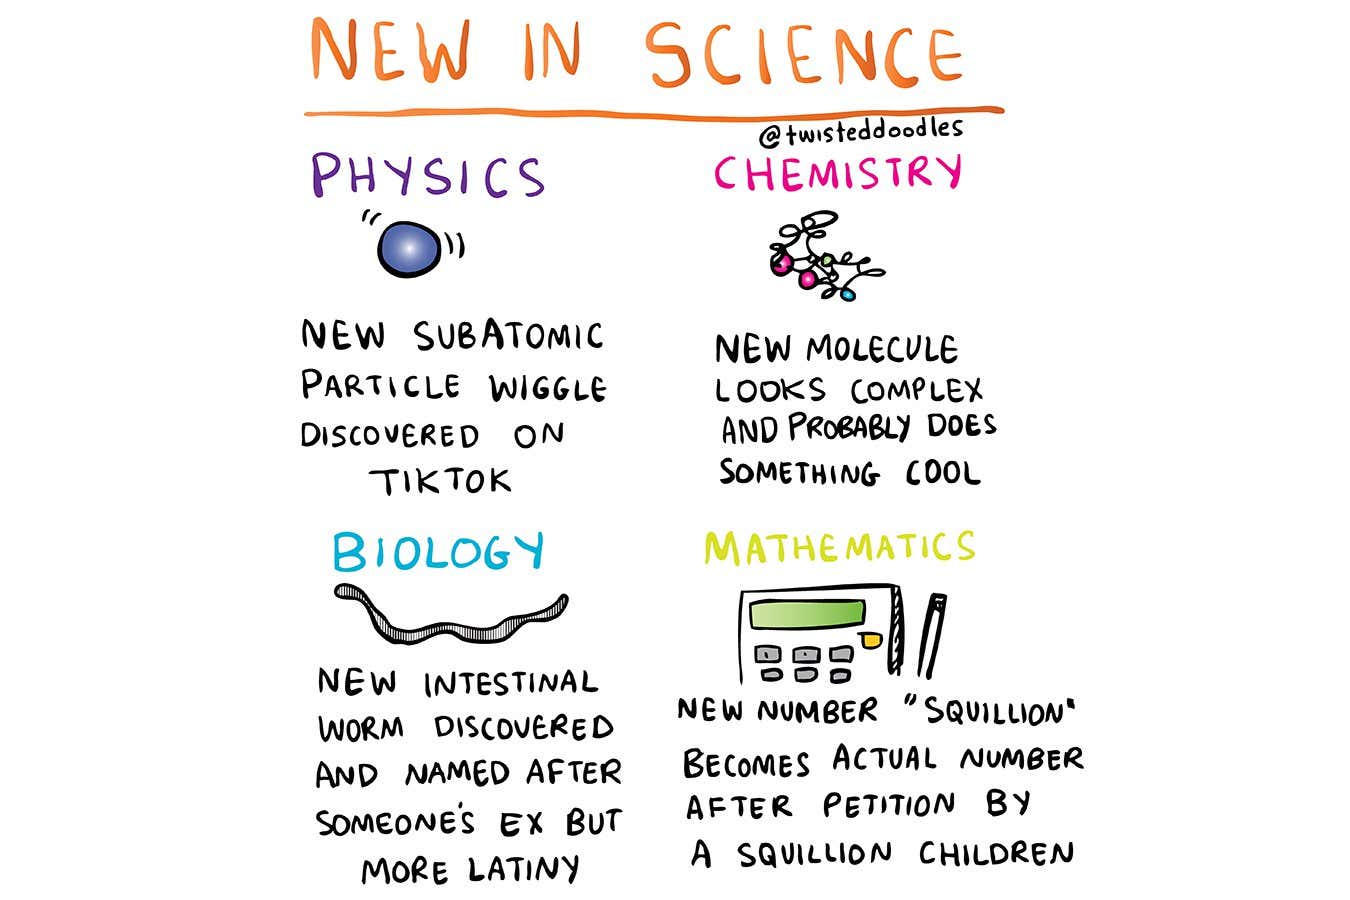 NEW IN SCIENCE
@twisteddoodles
PHYSICS
NEW SUBATOMIC
PARTICLE WIGGLE
DISCOVERED ON
TIKTOK
CHEMISTRY
NEW MOLECULE
LOOKS COMPLEX
AND PROBABLY DOES
SOMETHING COOL
BIOLOGY
NEW INTESTINAL
WORM DISCOVERED
AND NAMED AFTER
SOMEONE'S EX BUT
MORE LATINY
MATHEMATICS
NEW NUMBER "SQUILLION"
BECOMES ACTUAL NUMBER
AFTER PETITION BY
A SQUILLION CHILDREN